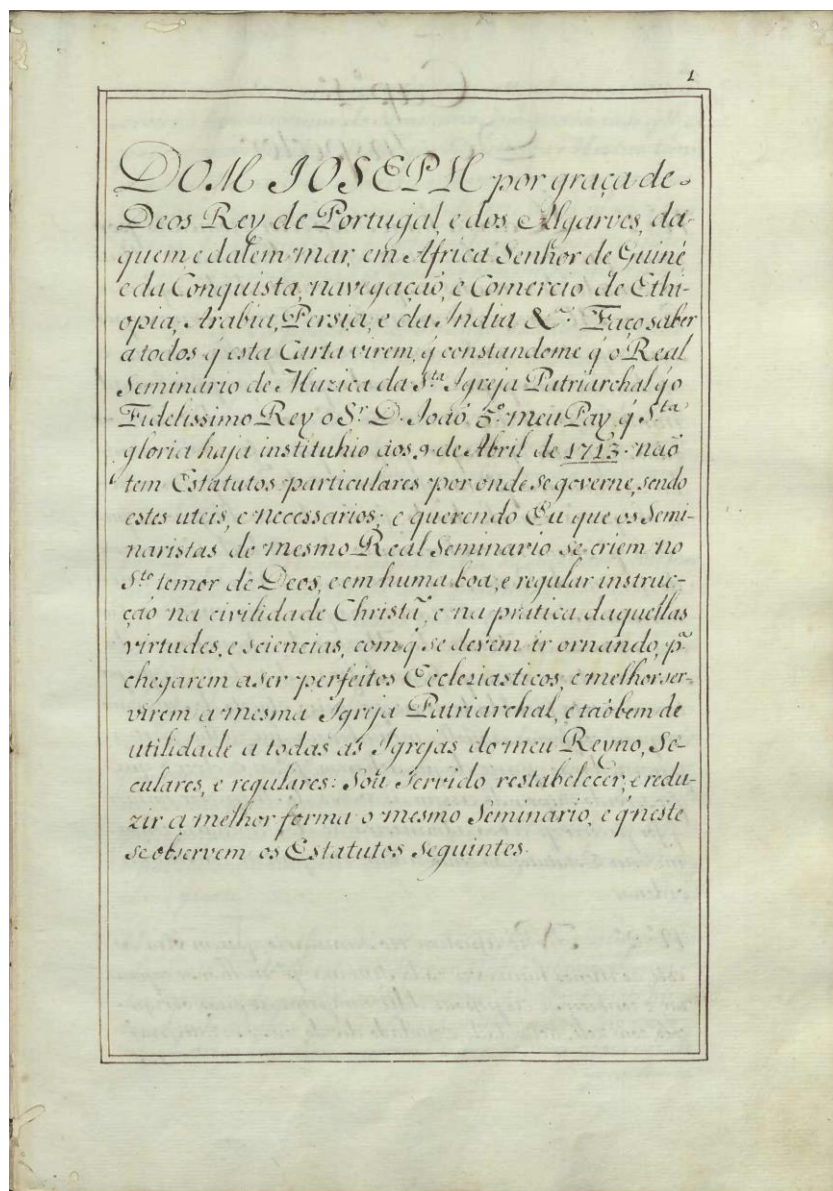 1
DOM JOSEPH por graça de
Deos Rey de Portugal, e dos Algarves, da-
quem e dalem mar, em Africa Senhor de Guiné
e da Conquista, navegação, e Comercio de Ethi-
opia, Arabia, Persia, e da India &c. Faço saber
a todos q̃ esta Carta virem, q̃ constandome q̃ o Real
Seminario de Muzica da Sta Igreja Patriarchal q̃ o
Fidelissimo Rey o Sr. D. Joaõ 5º meu Pay q̃ Sta
gloria haja instituhio aos 9 de Abril de 1713. naõ
tem Estatutos particulares por onde se governe, sendo
estes uteis, e necessarios; e querendo Eu que os Semi-
naristas de mesmo Real Seminario se criem no
Sto temor de Deos, e em huma boa, e regular instruc-
çaõ na civilidade Christã, e na pratica daquellas
virtudes, e sciencias, com q̃ se devem ir ornando, pª
chegarem a ser perfeitos Ecclesiasticos, e melhor ser-
virem a mesma Igreja Patriarchal, e taõbem de
utilidade a todas as Igrejas do meu Reyno, Se-
culares, e regulares: Sou servido restabelecer, e redu-
zir a melhor forma o mesmo Seminario, e q̃ neste
se observem os Estatutos seguintes.